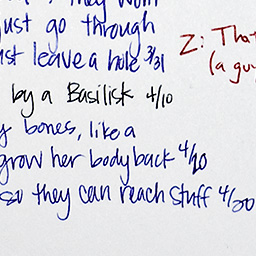 they won't
just go through
just leave a hole 3/31
by a Basilisk 4/10
bones, like a
grow her body back 4/20
so they can reach stuff 4/20
Z: That
(a guy